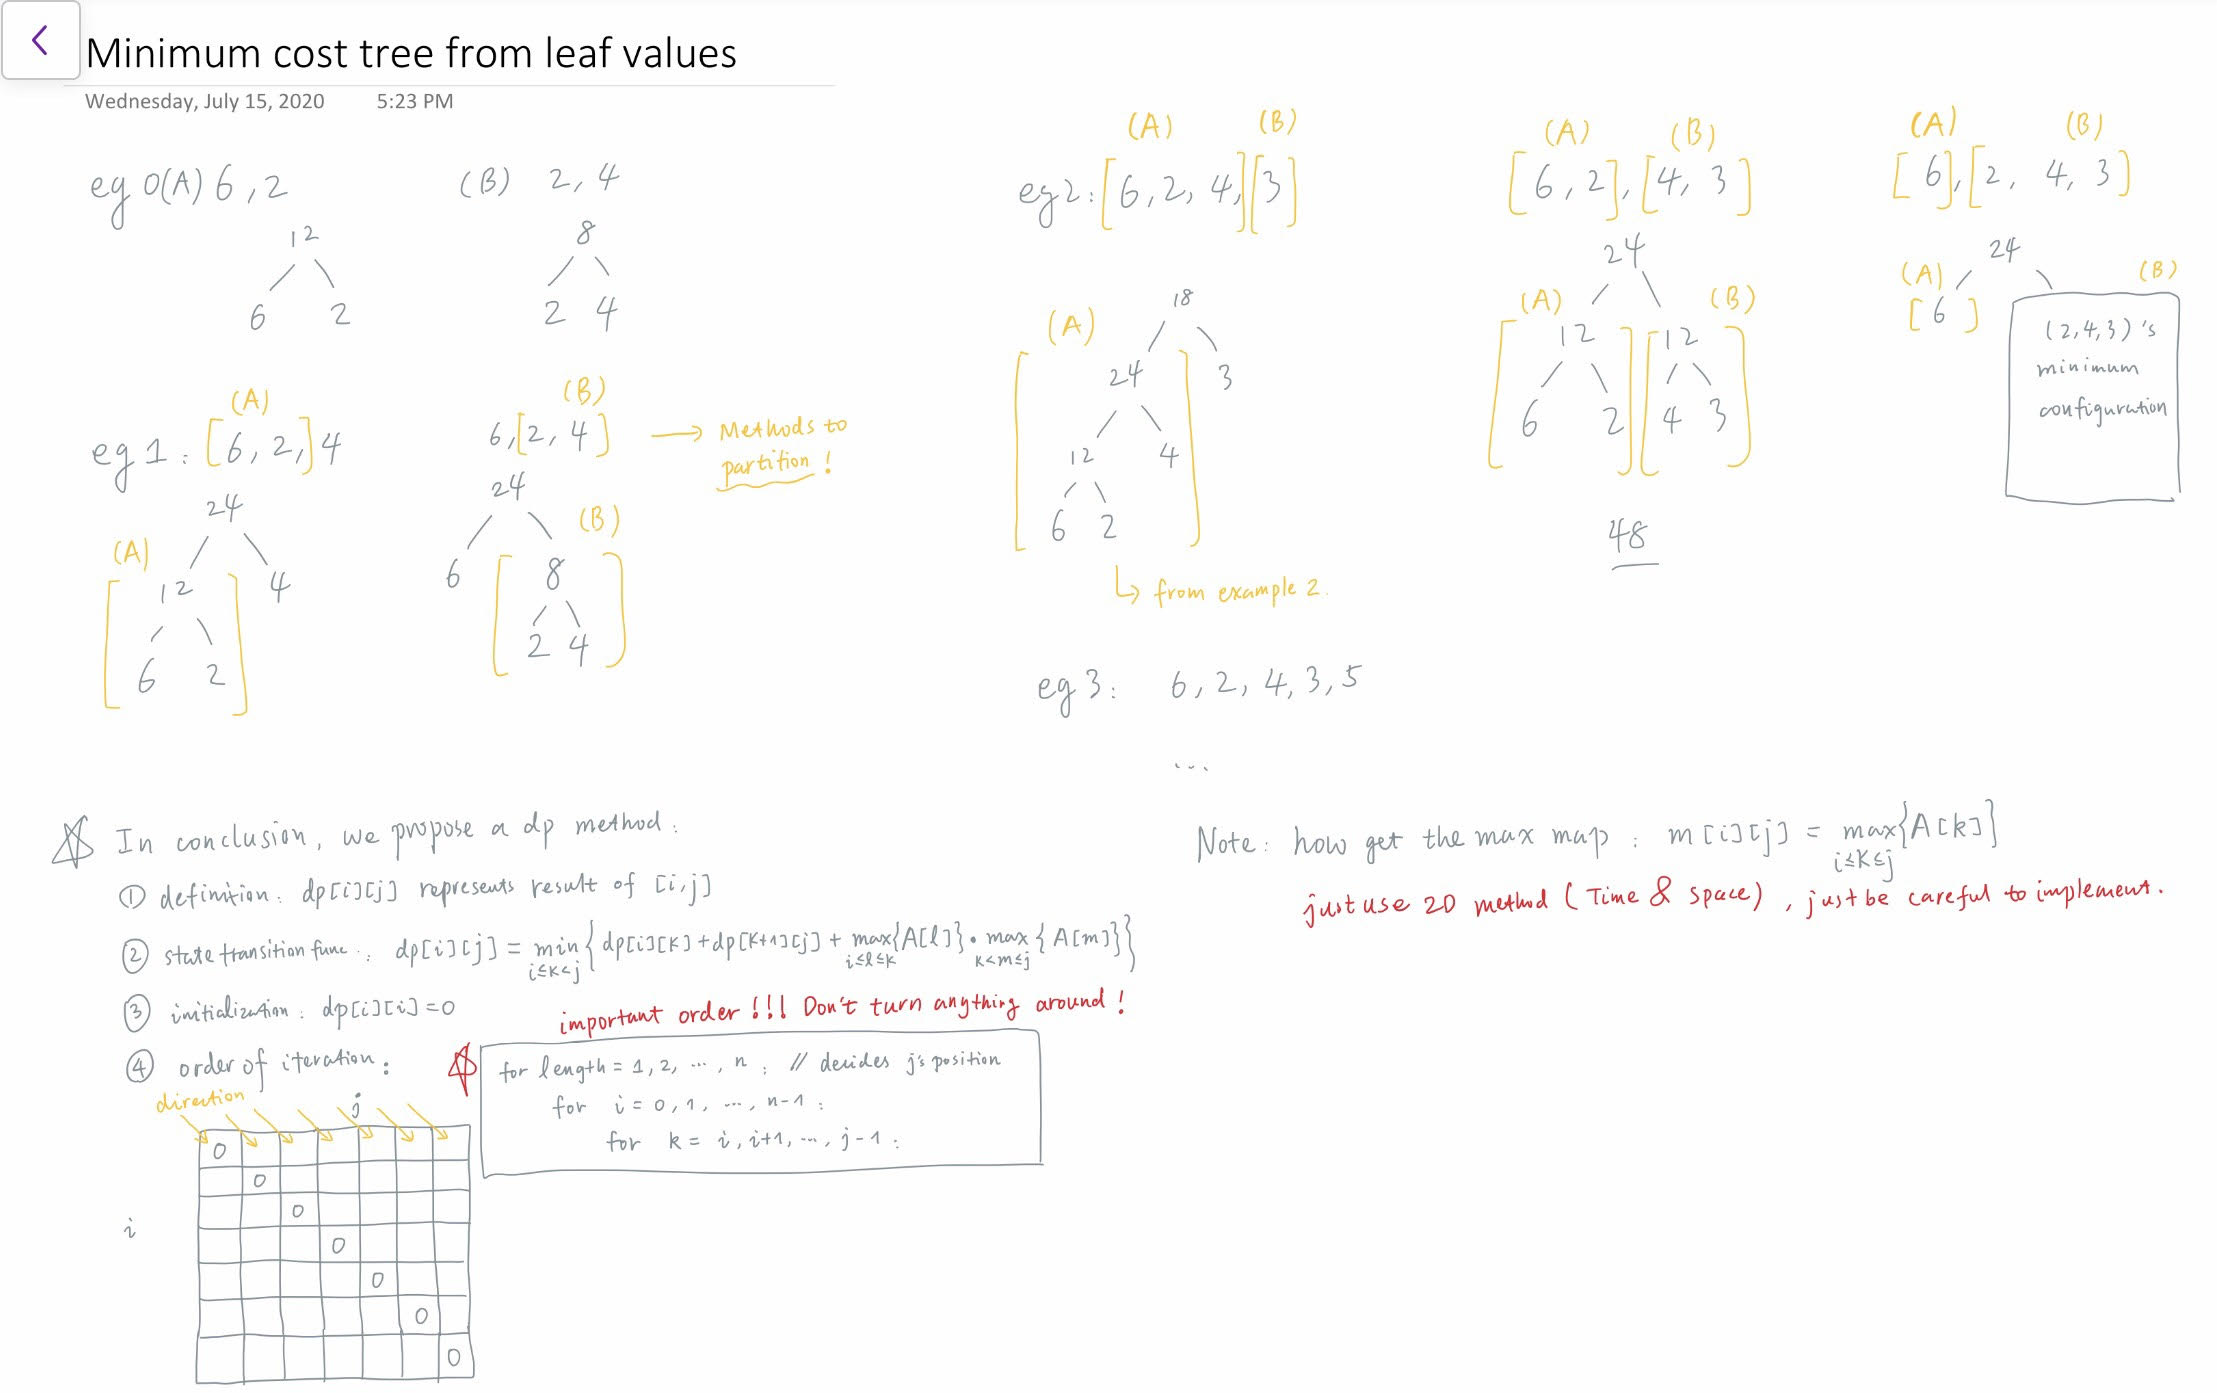 Minimum cost tree from leaf values
Wednesday, July 15, 2020 5:23 PM
eg 0(A) 6, 2
(B) 2, 4
12
6 2
8
2 4
(A)
eg 1: [6, 2,] 4
24
(A)
12 4
6 2
(B)
6, [2, 4]
→ Methods to
partition!
24
(B)
6 8
2 4
(A) (B)
eg 2: [6, 2, 4,] [3]
18
(A)
24 3
12 4
6 2
↳ from example 2.
(A) (B)
[6, 2], [4, 3]
24
(A) (B)
12 12
6 2 4 3
48
(A) (B)
[6], [2, 4, 3]
24
(A) (B)
[6]
(2,4,3)'s
minimum
configuration
eg 3: 6, 2, 4, 3, 5
...
In conclusion, we propose a dp method:
① definition: dp[i][j] represents result of [i,j]
② state transition func.: dp[i][j] = min{dp[i][k]+dp[k+1][j] + max{A[l]}·max{A[m]}}
i≤k<j i≤l≤k k<m≤j
③ initialization: dp[i][i]=0
important order!!! Don't turn anything around!
④ order of iteration:
for length = 1, 2, ..., n: // decides j's position
for i = 0, 1, ..., n-1:
for k = i, i+1, ..., j-1:
direction
j
i
0
0
0
0
0
0
0
Note: how get the max map: m[i][j] = max{A[k]}
i≤k≤j
just use 2D method (Time & space), just be careful to implement.